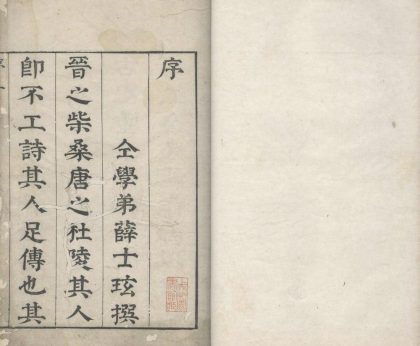 序
仝學弟薛士玹撰
晉之柴桑唐之杜陵其人
卽不工詩其人足傳也其